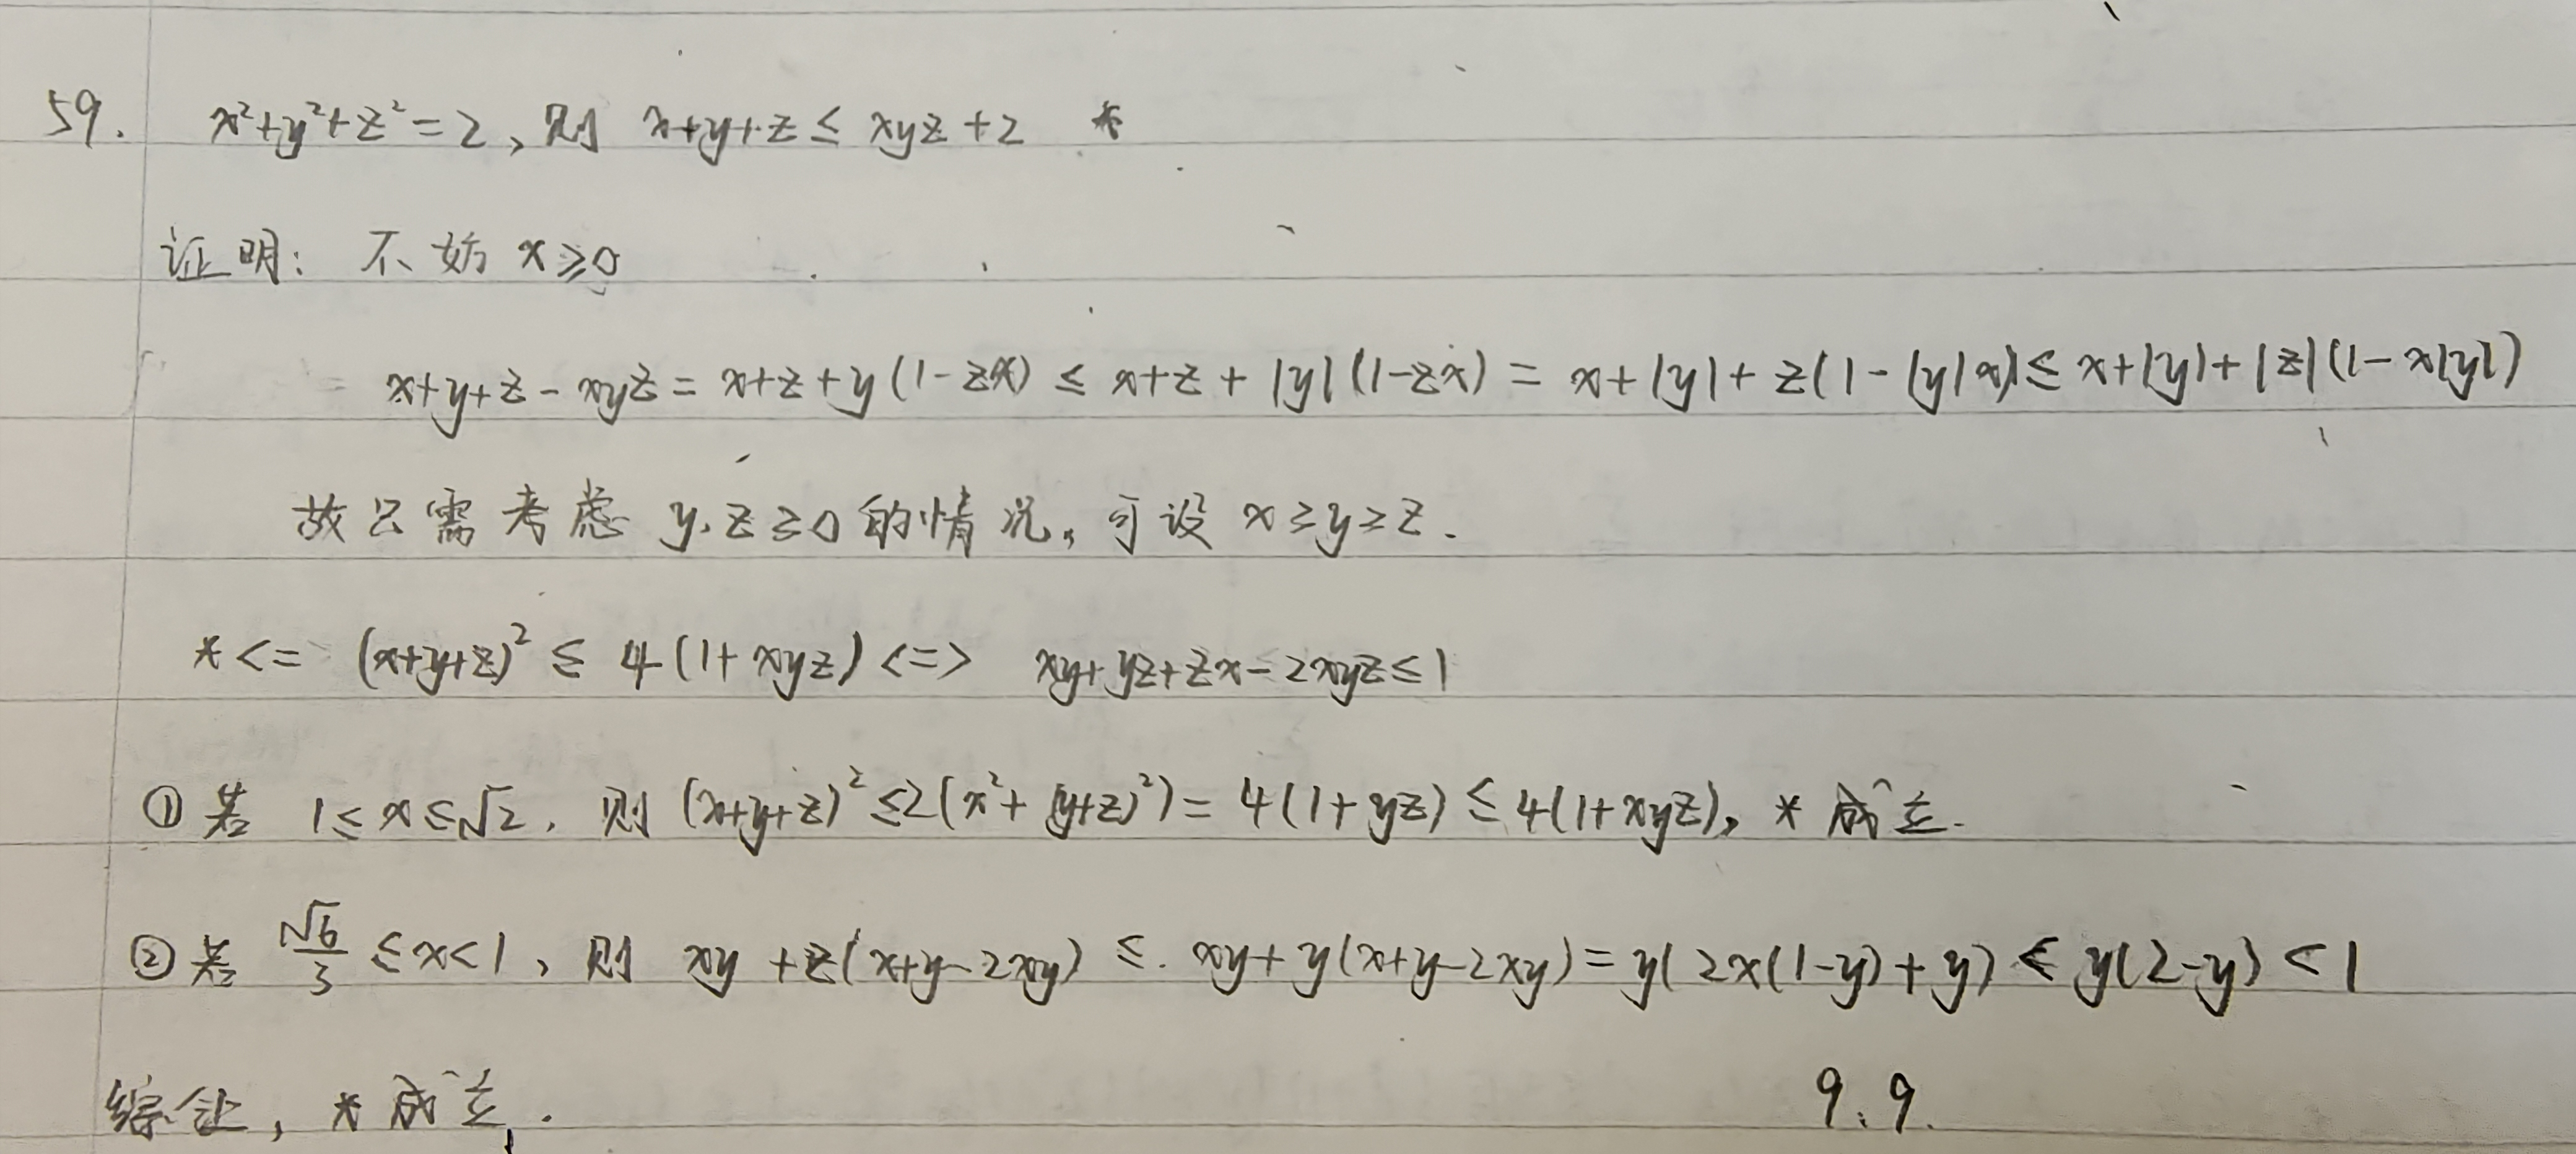 59. x²+y²+z²=2, 则 x+y+z ≤ xyz+2 *
证明: 不妨 x≥0
x+y+z-xyz = x+z+y(1-zx) ≤ x+z+|y|(1-zx) = x+|y|+z(1-|y|x) ≤ x+|y|+|z|(1-x|y|)
故只需考虑 y,z≥0的情况, 可设 x≥y≥z.
* <= (x+y+z)² ≤ 4(1+xyz) <=> xy+yz+zx-2xyz≤1
① 若 1≤x≤√2, 则 (x+y+z)² ≤2(x²+(y+z)²)= 4(1+yz) ≤4(1+xyz), * 成立.
② 若 √6/3 ≤x<1, 则 xy+z(x+y-2xy) ≤ xy+y(x+y-2xy)=y(2x(1-y)+y) ≤ y(2-y) <1
综上, * 成立.
9.9.